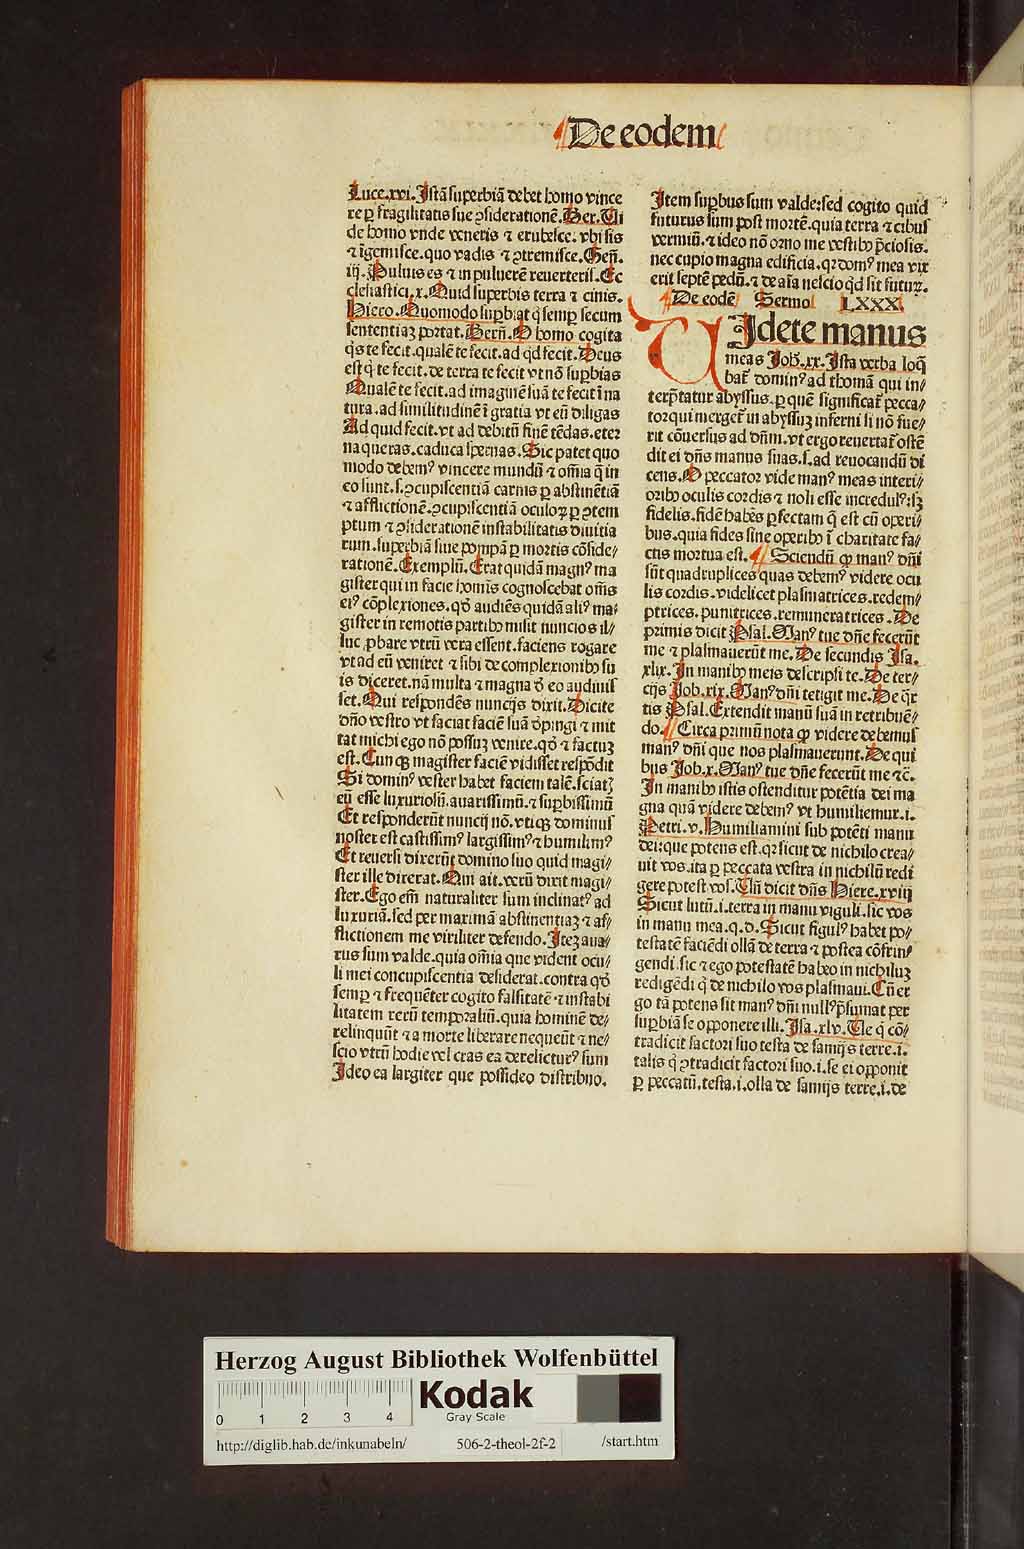 De eodem
Luce.xvi. Istã superbiã debet homo vince
re ꝑ fragilitatis sue ↄsiderationẽ. Ber. Vi
de homo vnde veneris ⁊ erubesce. vbi sis
⁊ ĩgemisce. quo vadis ⁊ ↄtremisce. Geñ.
iij. Puluis es ⁊ in puluerẽ reuerteris. Ec
clesiastici.x. Quid superbis terra ⁊ cinis.
Hiero. Quomodo supbiat q̃ semꝑ secum
sententiaz portat. Bern̄. O homo cogita
q̇s te fecit. qualẽ te fecit. ad qd fecit. Deus
est q̇ te fecit. de terra te fecit vt nõ supbias
Qualẽ te fecit. ad imaginẽ suã te fecit ĩ na
tura. ad similitudinẽ ĩ gratia vt eũ diligas
Ad quid fecit. vt ad debitũ finẽ tẽdas. eter
na queras. caduca spernas. Sic patet quo
modo debemꝰ vincere mundũ ⁊ om̃ia q̃ in
eo sunt. s. ↄcupiscentiã carnis ꝑ abstinẽtiã
⁊ afflictionẽ. ↄcupiscentiã oculoꝝ ꝑ ↄtem
ptum ⁊ ↄsiderationẽ instabilitatis diuitia
rum. superbiã siue pompã ꝑ mortis cõside/
rationẽ. Exemplũ. Erat quidã magnꝰ ma
gister qui in facie homĩs cognoscebat om̃s
eiꝰ cõplexiones. qđ audiẽs quidã aliꝰ ma/
gister in remotis partibꝰ misit nuncios il/
luc ꝓbare vtrũ vera essent. faciens rogare
vt ad eũ veniret ⁊ sibi de complexionibꝰ su
is diceret. nã multa ⁊ magna đ eo audiuis
set. Qui respondẽs nuncijs dixit. Dicite
dño vestro vt faciat faciẽ suã đpingi ⁊ mit
tat michi ego nõ possuz venire. qđ ⁊ factuz
est. Cunqꝫ magister faciẽ vidisset respõdit
Si dominꝰ vester habet faciem talẽ. sciatꝫ
eũ esse luxuriosũ. auarissimũ. ⁊ supbissimũ
Et responderũt nuncij nõ. vtiqꝫ dominus
noster est castissimꝰ largissimꝰ ⁊ humilimꝰ
Et reuersi dixerũt domino suo quid magi/
ster ille dixerat. Qui ait. verũ dixit magi/
ster. Ego em̃ naturaliter sum inclinatꝰ ad
luxuriã. sed per maximã abstinentiaz ⁊ af/
flictionem me viriliter defendo. Itez aua/
rus sum valde. quia om̃ia que vident ocu/
li mei concupiscentia desiderat. contra qđ
semꝑ ⁊ frequẽter cogito falsitatẽ ⁊ instabi
litatem rerũ temporaliũ. quia hominẽ de/
relinquũt ⁊ a morte liberare nequeũt ⁊ ne/
scio vtrũ hodie vel cras ea derelicturꝰ sum
Ideo ea largiter que possideo distribuo.
Item supbus sum valde: sed cogito quid
futurus sum post mortẽ. quia terra ⁊ cibus
vermiũ. ⁊ ideo nõ orno me vestibꝰ p̃ciosis.
nec cupio magna edificia. qꝛ domꝰ mea vix
erit septẽ pedũ. ⁊ de aĩa nescio qd sit futuꝝ.
De eodẽ Sermo LXXX
VIdete manus
meas Joh̃. xx. Ista verba loq̃
bat̃ dominꝰ ad thomã qui in/
terp̃tatur abyssus. ꝑ quẽ significat̃ pecca/
tor qui merget̃ in abyssuz inferni si nõ fue/
rit cõuersus ad dñm. vt ergo reuertat̃ ostẽ
dit ei dñs manus suas. s. ad reuocandũ di
cens. O peccator vide manꝰ meas interi/
oribꝰ oculis cordis ⁊ noli esse incredulꝰ: sꝫ
fidelis. fidẽ habẽs ꝑfectam q̃ est cũ operi/
bus. quia fides sine operibꝰ ĩ charitate fa/
ctis mortua est. Sciendũ ꝙ manꝰ dñi
sũt quadruplices quas debemꝰ videre ocu
lis cordis. videlicet plasmatrices. redem/
ptrices. punitrices. remuneratrices. De
primis dicit Psal. Manꝰ tue dñe fecerũt
me ⁊ plasmauerũt me. De secundis Isa.
xlix. In manibꝰ meis descripsi te. De ter/
cijs Job. xix. Manꝰ dñi tetigit me. De q̃r
tis Psal. Extendit manũ suã in retribuẽ/
do. Circa primũ nota ꝙ videre debemus
manꝰ dñi que nos plasmauerunt. De qui
bus Job. x. Manꝰ tue dñe fecerũt me ⁊c̃.
In manibꝰ istis ostenditur potẽtia dei ma
gna quã videre debemꝰ vt humiliemur. i.
Petri. v. Humiliamini sub potẽti manu
dei: que potens est. qꝛ sicut de nichilo crea/
uit vos. ita ꝑ peccata vestra in nichilũ redi
gere potest vos. Vñ dicit dñs Hiere. xviij
Sicut lutũ. i. terra in manu viguli. sic vos
in manu mea. q. d. Sicut figulꝰ habet po/
testatẽ faciẽdi ollã de terra ⁊ postea cõfrin/
gendi. sic ⁊ ego potestatẽ habeo in nichiluz
redigẽdi q̃ de nichilo vos plasmaui. Cũ er
go tã potens sit manꝰ dñi nullꝰ p̃sumat per
supbiã se opponere illi. Isa. xlv. Ve q̇ cõ/
tradicit factori suo testa de samijs terre. i.
talis q̇ ↄtradicit factori suo. i. se ei opponit
ꝑ peccatũ. testa. i. olla de samijs terre. i. de
Herzog August Bibliothek Wolfenbüttel
0 1 2 3 4
Kodak
Gray Scale
http://diglib.hab.de/inkunabeln/ 506-2-theol-2f-2 /start.htm